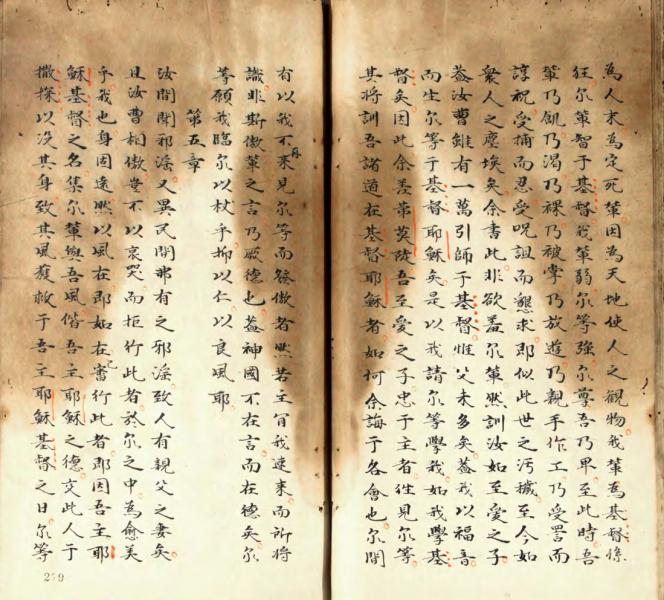 為人末為定死輩因為天地使人之觀物我輩為基督係
狂尔輩智于基督我輩弱尔等強尔尊吾乃卑至此時吾
輩乃飢乃渴乃裸乃被掌乃放遊乃親手作工乃受詈而
諄祝受捕而忍受呪詛而懇求即似此世之污穢至今如
衆人之塵埃矣余書此非欲羞尔輩然訓汝如至愛之子
蓋汝曹雖有一萬引師于基督惟父未多矣蓋我以福音
而生尔等于基督耶穌矣是以我請尔等學我如我學基
督矣因此余差第莫陡吾至愛之子忠于主者徃見尔等
其將訓吾諸道在基督耶穌者如何余誨于各會也尔間
有以我不再來見尔等而發傲者然若主肯我速來而所將
識非斯傲輩之言乃厥德也蓋神國不在言而在德矣尔
等願我臨尔以杖乎抑以仁以良風耶
第五章
汝間聞邪淫又異民間弗有之邪淫致人有親父之妻矣
且汝曹相傲豈不以哀哭而拒行此者於尔之中為愈美
乎我也身因遠然以風在即如在審行此者即因吾主耶
穌基督之名集尔輩與吾風偕吾主耶穌之德交此人于
撒探以沒其身致其風獲救于吾主耶穌基督之日尔等
279